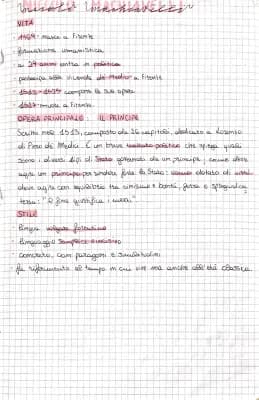 Niccolò Machiavelli
VITA
· 1469 nasce a Firenze
· formazione umanistica
· a 29 anni entra in politica
· partecipa alle vicende dei Medici a Firenze
· 1513-1525 compone le sue opere
· 1527 muore a Firenze.
OPERA PRINCIPALE: IL PRINCIPE
Scritto nel 1513, composto da 26 capitoli, dedicato a Lorenzo
di Piero de Medici. È un breve trattato politico che spiega quali
sono i diversi tipi di Stato governati da un principe, come deve
agire un principe per rendere forte lo Stato: uomo dotato di virtù
deve agire con equilibrio tra crudeltà e bontà, forza e spregiudica
tezza: "il fine giustifica i mezzi".
STILE
· lingua volgare fiorentino
· linguaggio semplice e incisivo
· concreto, con paragoni e similitudini
· fa riferimento al tempo in cui vive ma anche all'età classica.